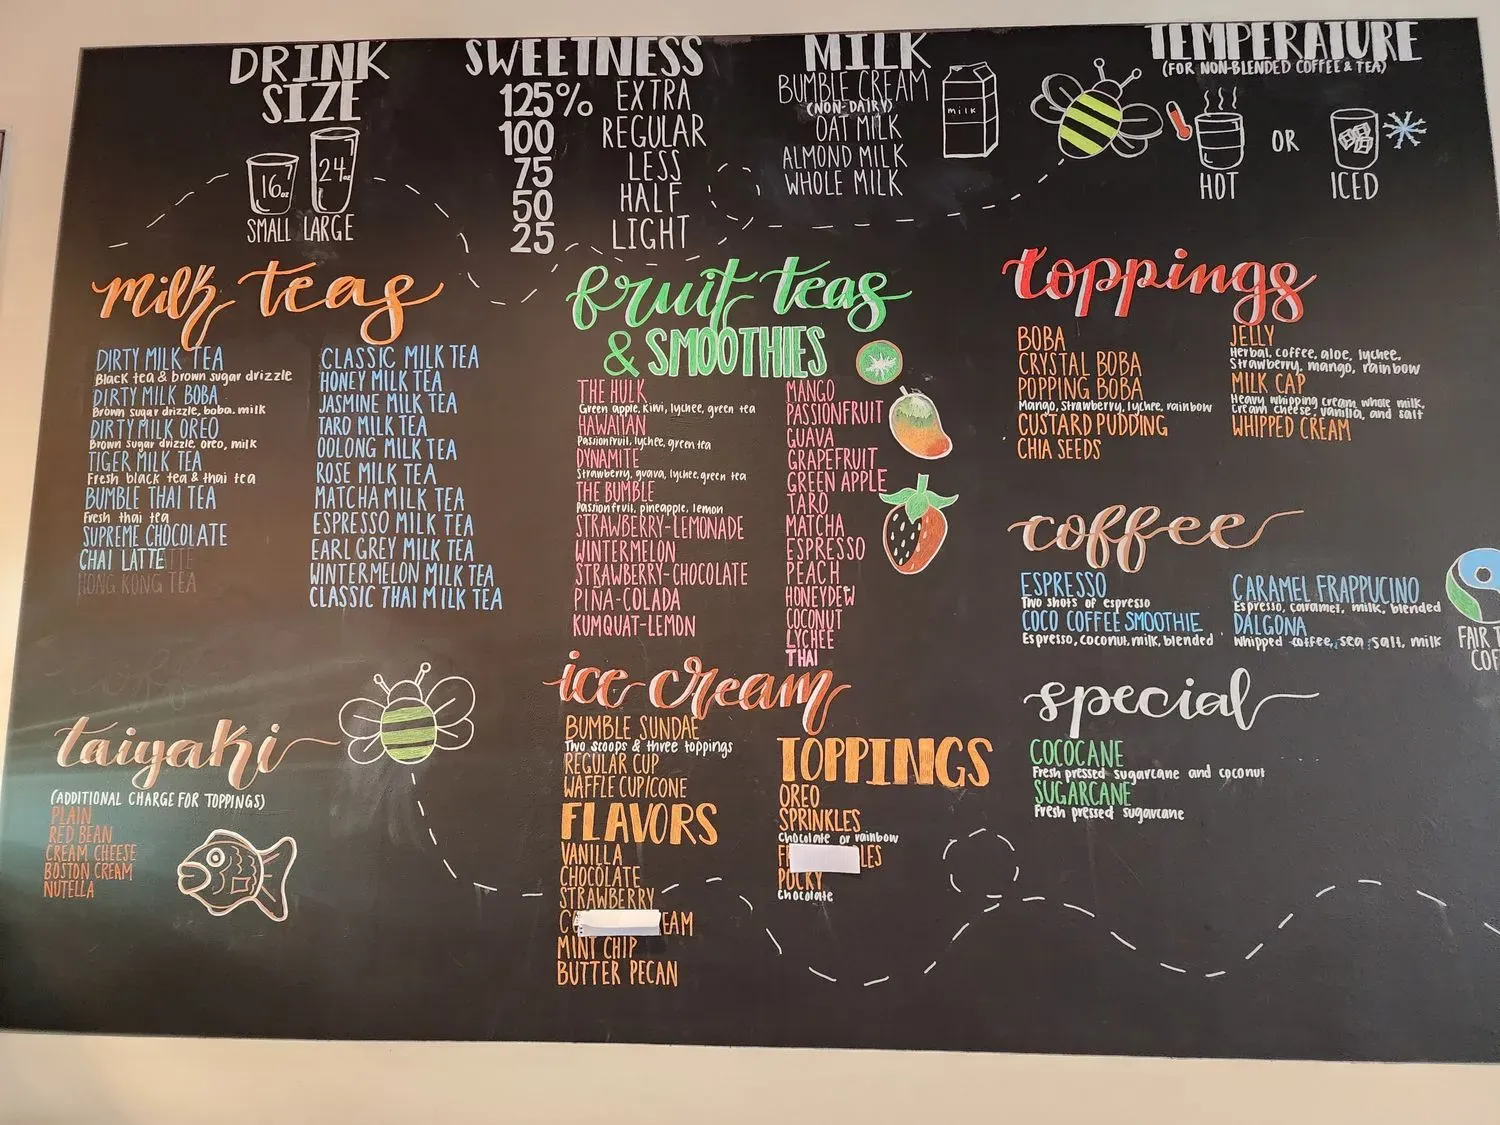 DRINK
SIZE
16oz
24oz
SMALL LARGE
SWEETNESS
125% EXTRA
100 REGULAR
75 LESS
50 HALF
25 LIGHT
MILK
BUMBLE CREAM
(NON-DAIRY)
OAT MILK
ALMOND MILK
WHOLE MILK
milk
TEMPERATURE
(FOR NON-BLENDED COFFEE & TEA)
OR
HOT
ICED
milk teas
DIRTY MILK TEA
Black tea & brown sugar drizzle
DIRTY MILK BOBA
Brown sugar drizzle, boba, milk
DIRTY MILK OREO
Brown sugar drizzle, oreo, milk
TIGER MILK TEA
Fresh black tea & thai tea
BUMBLE THAI TEA
Fresh thai tea
SUPREME CHOCOLATE
CHAI LATTE
HONG KONG TEA
CLASSIC MILK TEA
HONEY MILK TEA
JASMINE MILK TEA
TARO MILK TEA
OOLONG MILK TEA
ROSE MILK TEA
MATCHA MILK TEA
ESPRESSO MILK TEA
EARL GREY MILK TEA
WINTERMELON MILK TEA
CLASSIC THAI MILK TEA
fruit teas
& SMOOTHIES
THE HULK
Green apple, kiwi, lychee, green tea
HAWAIIAN
Passionfruit, lychee, green tea
DYNAMITE
Strawberry, guava, lychee, green tea
THE BUMBLE
Passionfruit, pineapple, lemon
STRAWBERRY-LEMONADE
WINTERMELON
STRAWBERRY-CHOCOLATE
PINA-COLADA
KUMQUAT-LEMON
MANGO
PASSIONFRUIT
GUAVA
GRAPEFRUIT
GREEN APPLE
TARO
MATCHA
ESPRESSO
PEACH
HONEYDEW
COCONUT
LYCHEE
THAI
toppings
BOBA
CRYSTAL BOBA
POPPING BOBA
Mango, strawberry, lychee, rainbow
CUSTARD PUDDING
CHIA SEEDS
JELLY
Herbal, coffee, aloe, lychee,
Strawberry, mango, rainbow
MILK CAP
Heavy whipping cream, whole milk,
cream cheese, vanilla, and salt
WHIPPED CREAM
coffee
ESPRESSO
Two shots of espresso
COCO COFFEE SMOOTHIE
Espresso, coconut, milk, blended
CARAMEL FRAPPUCINO
Espresso, caramel, milk, blended
DALGONA
Whipped coffee, sea salt, milk
FAIR T
COF
taiyaki
(ADDITIONAL CHARGE FOR TOPPINGS)
PLAIN
RED BEAN
CREAM CHEESE
BOSTON CREAM
NUTELLA
ice cream
BUMBLE SUNDAE
Two scoops & three toppings
REGULAR CUP
WAFFLE CUP/CONE
FLAVORS
VANILLA
CHOCOLATE
STRAWBERRY
EAM
MINT CHIP
BUTTER PECAN
TOPPINGS
OREO
SPRINKLES
Chocolate or rainbow
LES
POCKY
Chocolate
special
COCOCANE
Fresh pressed sugarcane and coconut
SUGARCANE
Fresh pressed sugarcane